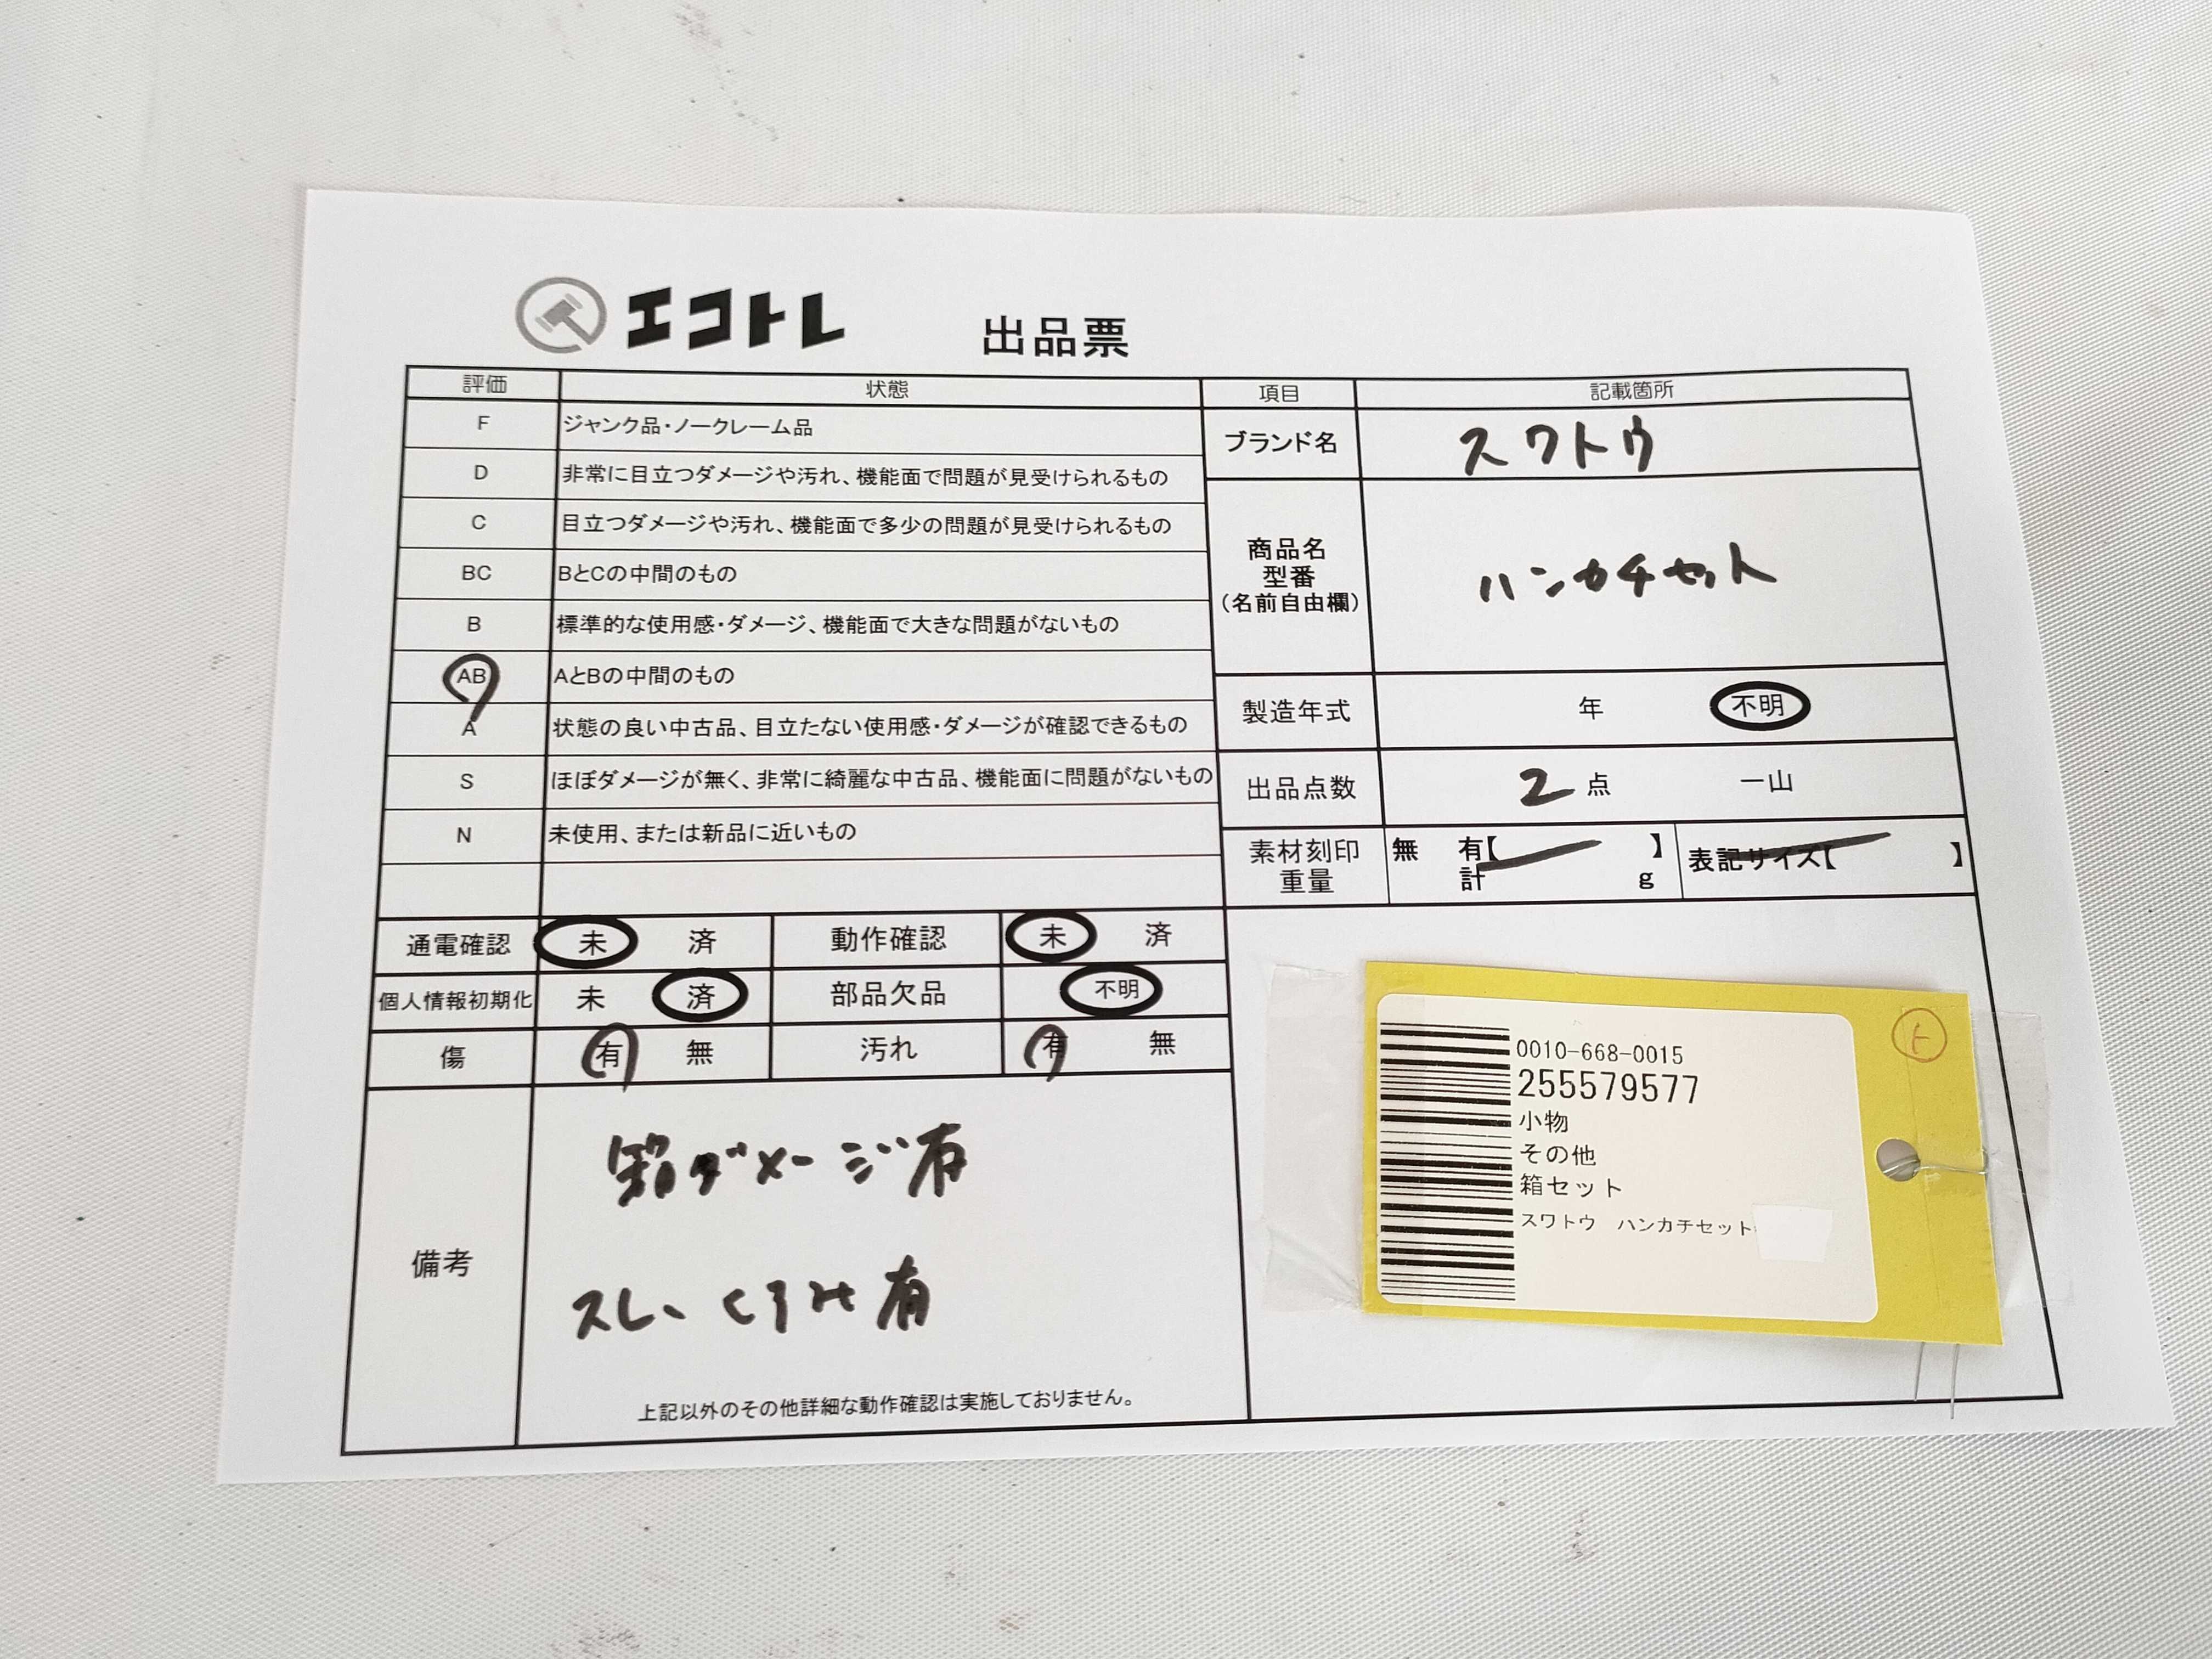 エコトレ 出品票
評価 状態
F ジャンク品・ノークレーム品
D 非常に目立つダメージや汚れ、機能面で問題が見受けられるもの
C 目立つダメージや汚れ、機能面で多少の問題が見受けられるもの
BC BとCの中間のもの
B 標準的な使用感・ダメージ、機能面で大きな問題がないもの
AB AとBの中間のもの
A 状態の良い中古品、目立たない使用感・ダメージが確認できるもの
S ほぼダメージが無く、非常に綺麗な中古品、機能面に問題がないもの
N 未使用、または新品に近いもの
項目 記載箇所
ブランド名 スワトウ
商品名
型番
(名前自由欄)
ハンカチセット
製造年式 年 不明
出品点数 2点 一山
素材刻印 無 有【 】 表記サイズ【 】
重量 計 g
通電確認 未 済 動作確認 未 済
個人情報初期化 未 済 部品欠品 不明
傷 有 無 汚れ 有 無
備考
箱ダメージ有
スレ、くすみ有
上記以外のその他詳細な動作確認は実施しておりません。
0010-668-0015
255579577
小物
その他
箱セット
スワトウ ハンカチセット